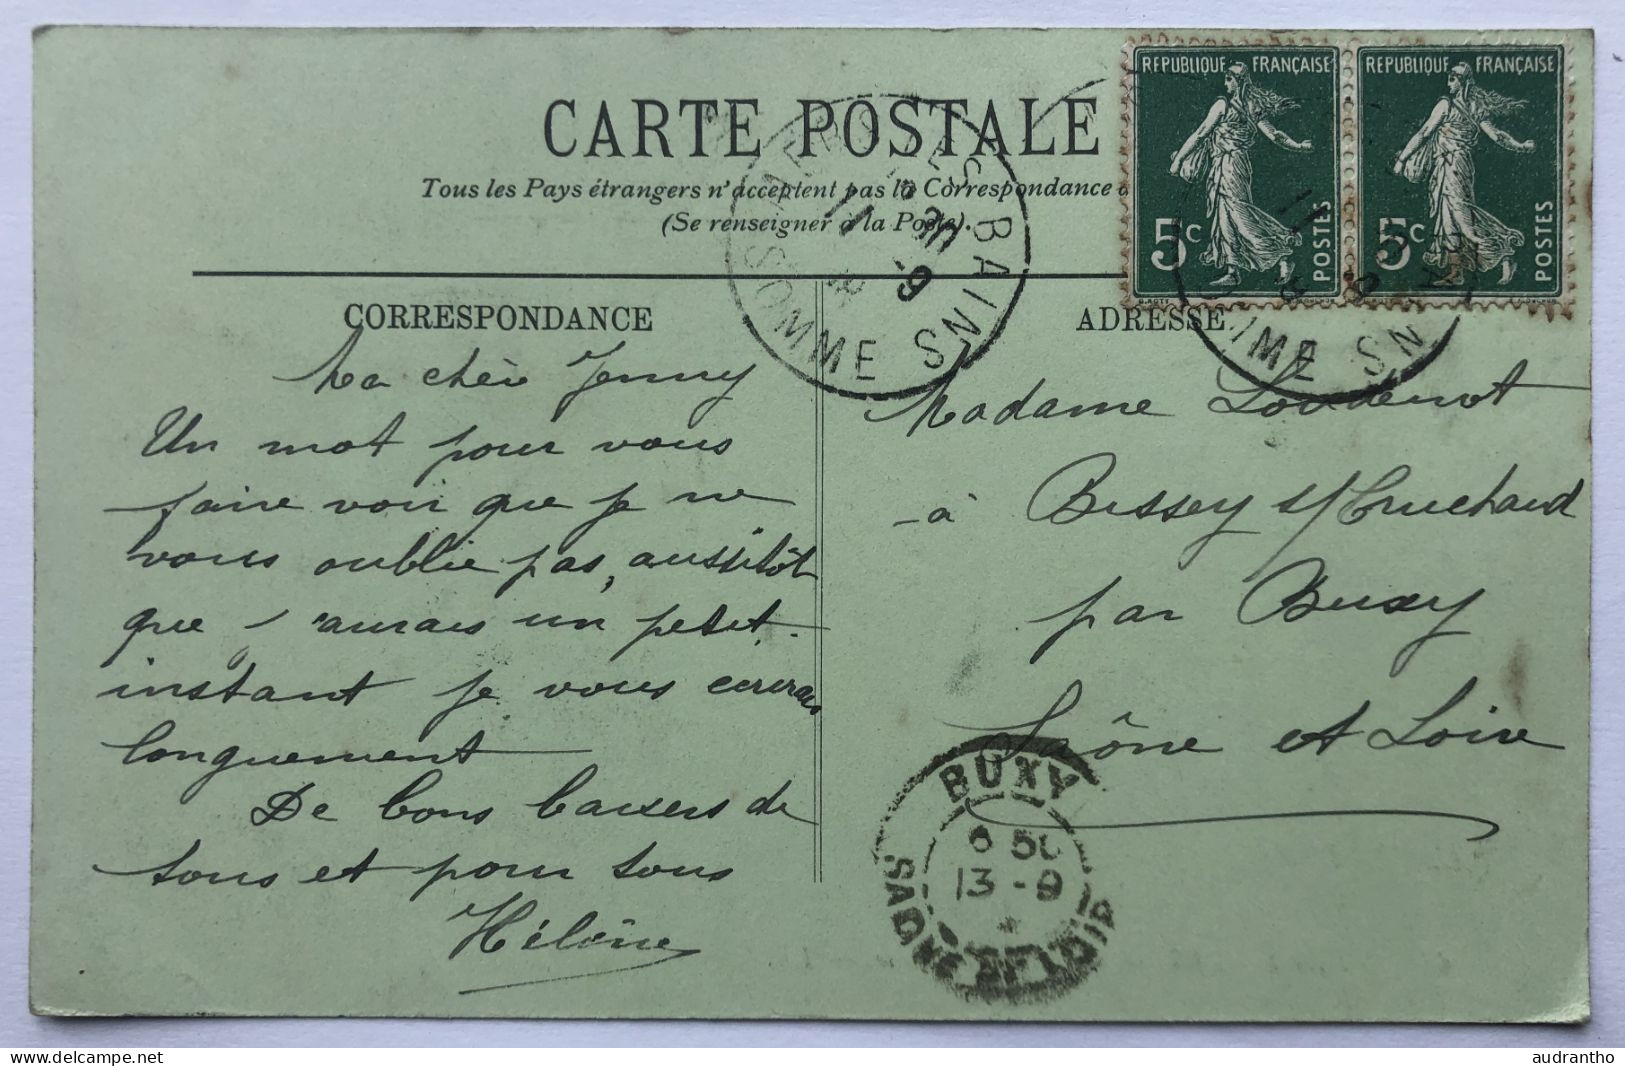 CARTE POSTALE
Tous les Pays étrangers n'acceptent pas la Correspondance a
(Se renseigner à la Poste).
REPUBLIQUE FRANÇAISE
5c POSTES
REPUBLIQUE FRANÇAISE
5c POSTES
LES BAINS
11 9
SOMME
CORRESPONDANCE
Ma chère Jenny
Un mot pour vous
faire voir que je ne
vous oublie pas, aussitôt
que j'aurais un petit
instant je vous écrirais
longuement
De bons baisers de
tous et pour tous
Hélène
ADRESSE
Madame Loudenot
à Bissey s/ Cruchaud
par Buxy
Saône et Loire
BUXY
6 50
13 - 9
SAONE ET LOIRE
audrantho